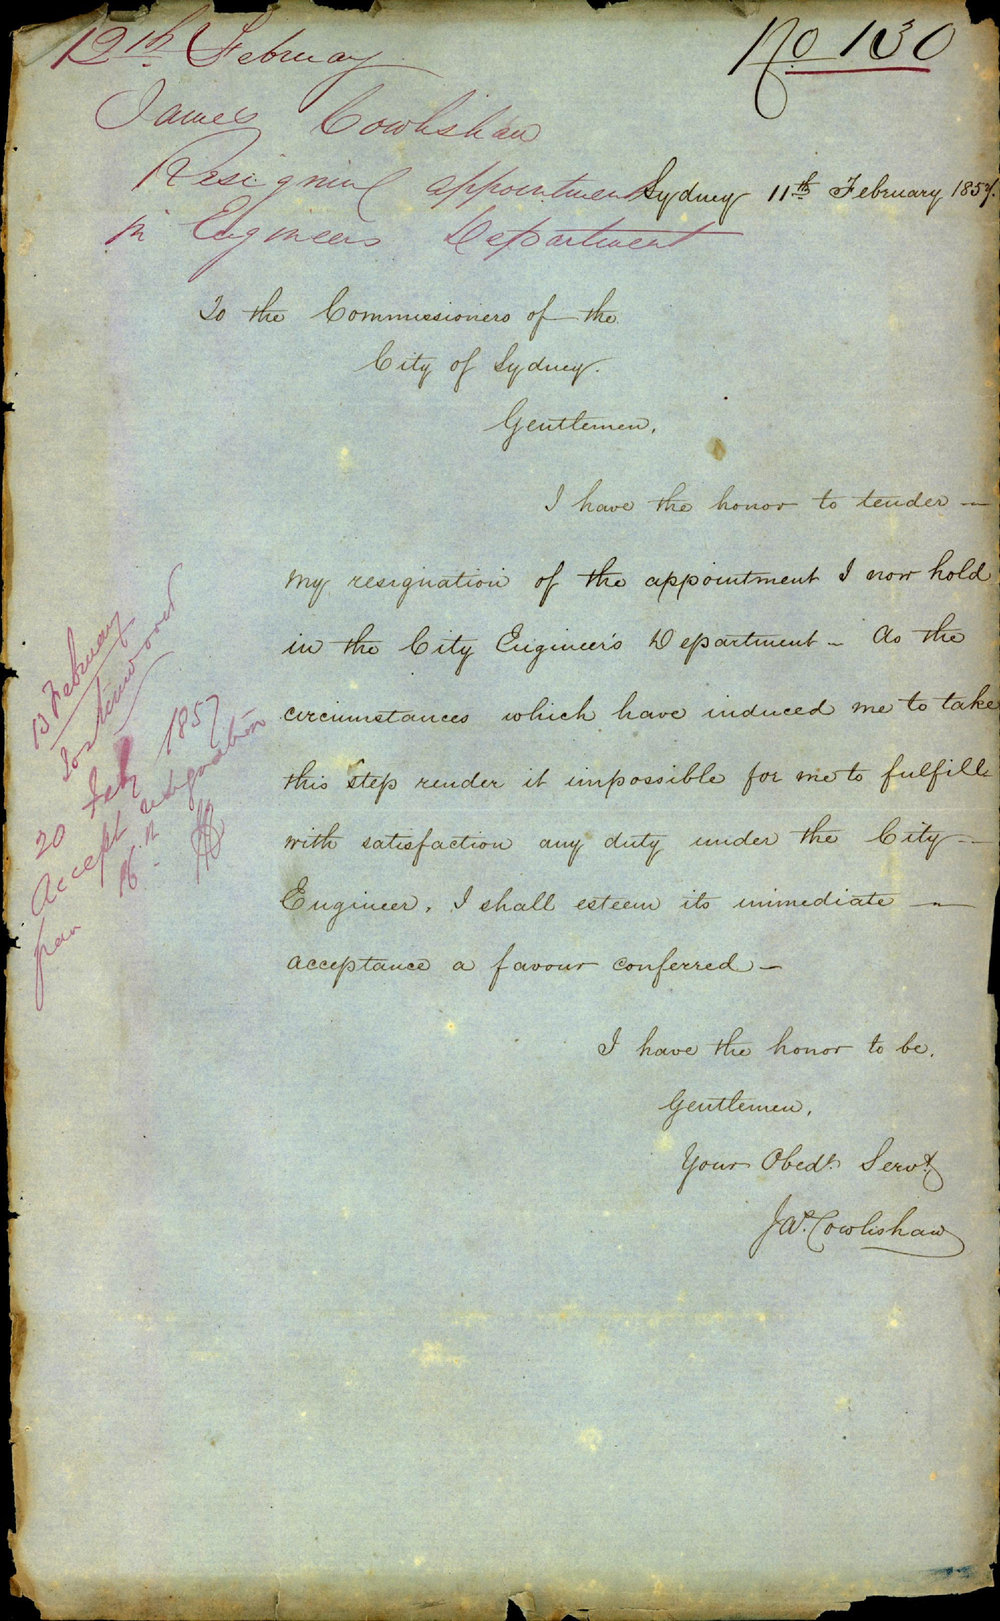 12th February
No 130
James Cowlishaw
Resigning appointment
in Engineers Department
Sydney 11th February 1857.
To the Commissioners of the
City of Sydney.
Gentlemen,
I have the honor to tender
my resignation of the appointment I now hold
in the City Engineer's Department - As the
circumstances which have induced me to take
this step render it impossible for me to fulfill
with satisfaction any duty under the City
Engineer, I shall esteem its immediate
acceptance a favour conferred -
I have the honor to be,
Gentlemen,
Your Obedt. Servt.
J W. Cowlishaw
13 February
20 Feby 1857
Accept resignation